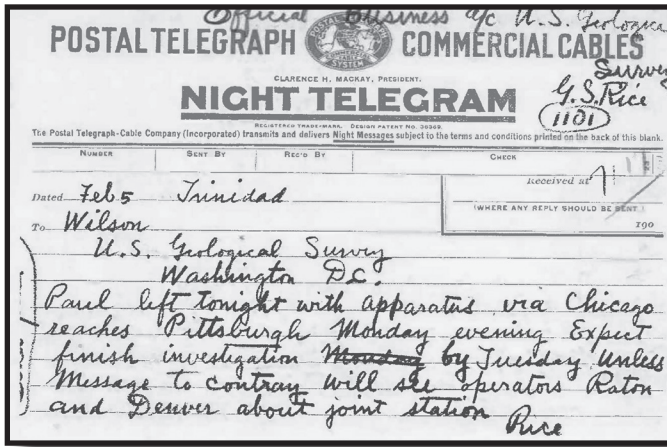 Official Business a/c U.S. Geological
Survey
POSTAL TELEGRAPH COMMERCIAL CABLES
CLARENCE H. MACKAY, PRESIDENT.
G.S. Rice
1101
NIGHT TELEGRAM
REGISTERED TRADE-MARK. DESIGN PATENT No. 36369.
The Postal Telegraph-Cable Company (Incorporated) transmits and delivers Night Messages subject to the terms and conditions printed on the back of this blank.
NUMBER SENT BY REC'D BY CHECK
Received at
(WHERE ANY REPLY SHOULD BE SENT
190
Dated Feb 5 Trinidad
To Wilson
U.S. Geological Survey
Washington D.C.
Paul left tonight with apparatus via Chicago
reaches Pittsburgh Monday evening Expect
finish investigation Monday by Tuesday unless
Message to contray will see operators Raton
and Denver about joint station
Rice